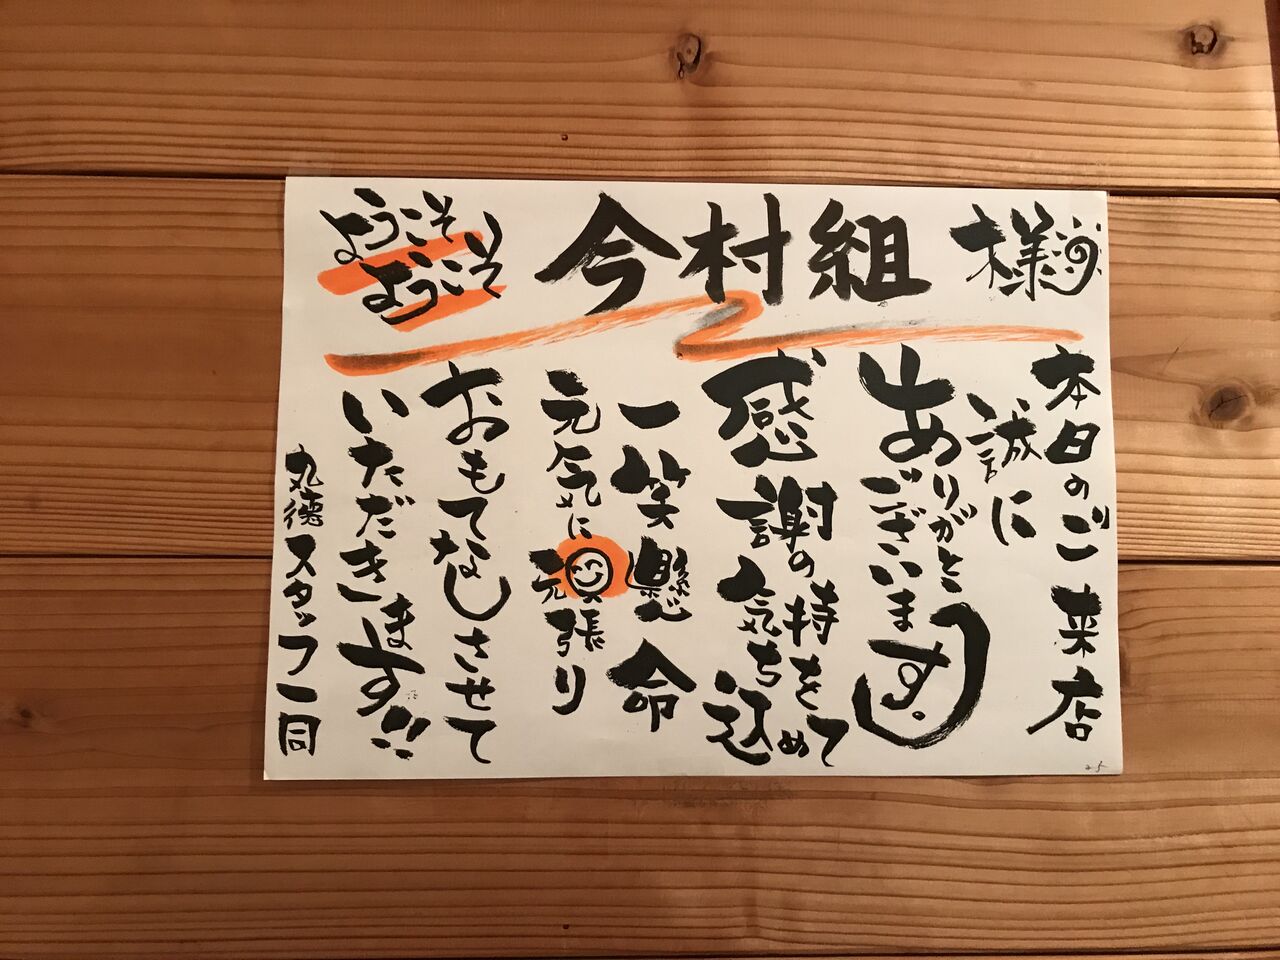 ようこそ
ようこそ
今村組 様
本日のご来店
誠に
ありがとうございます。
感謝の気持ちを込めて
一笑懸命
元気に頑張り
おもてなしさせて
いただきます!!
丸徳スタッフ一同